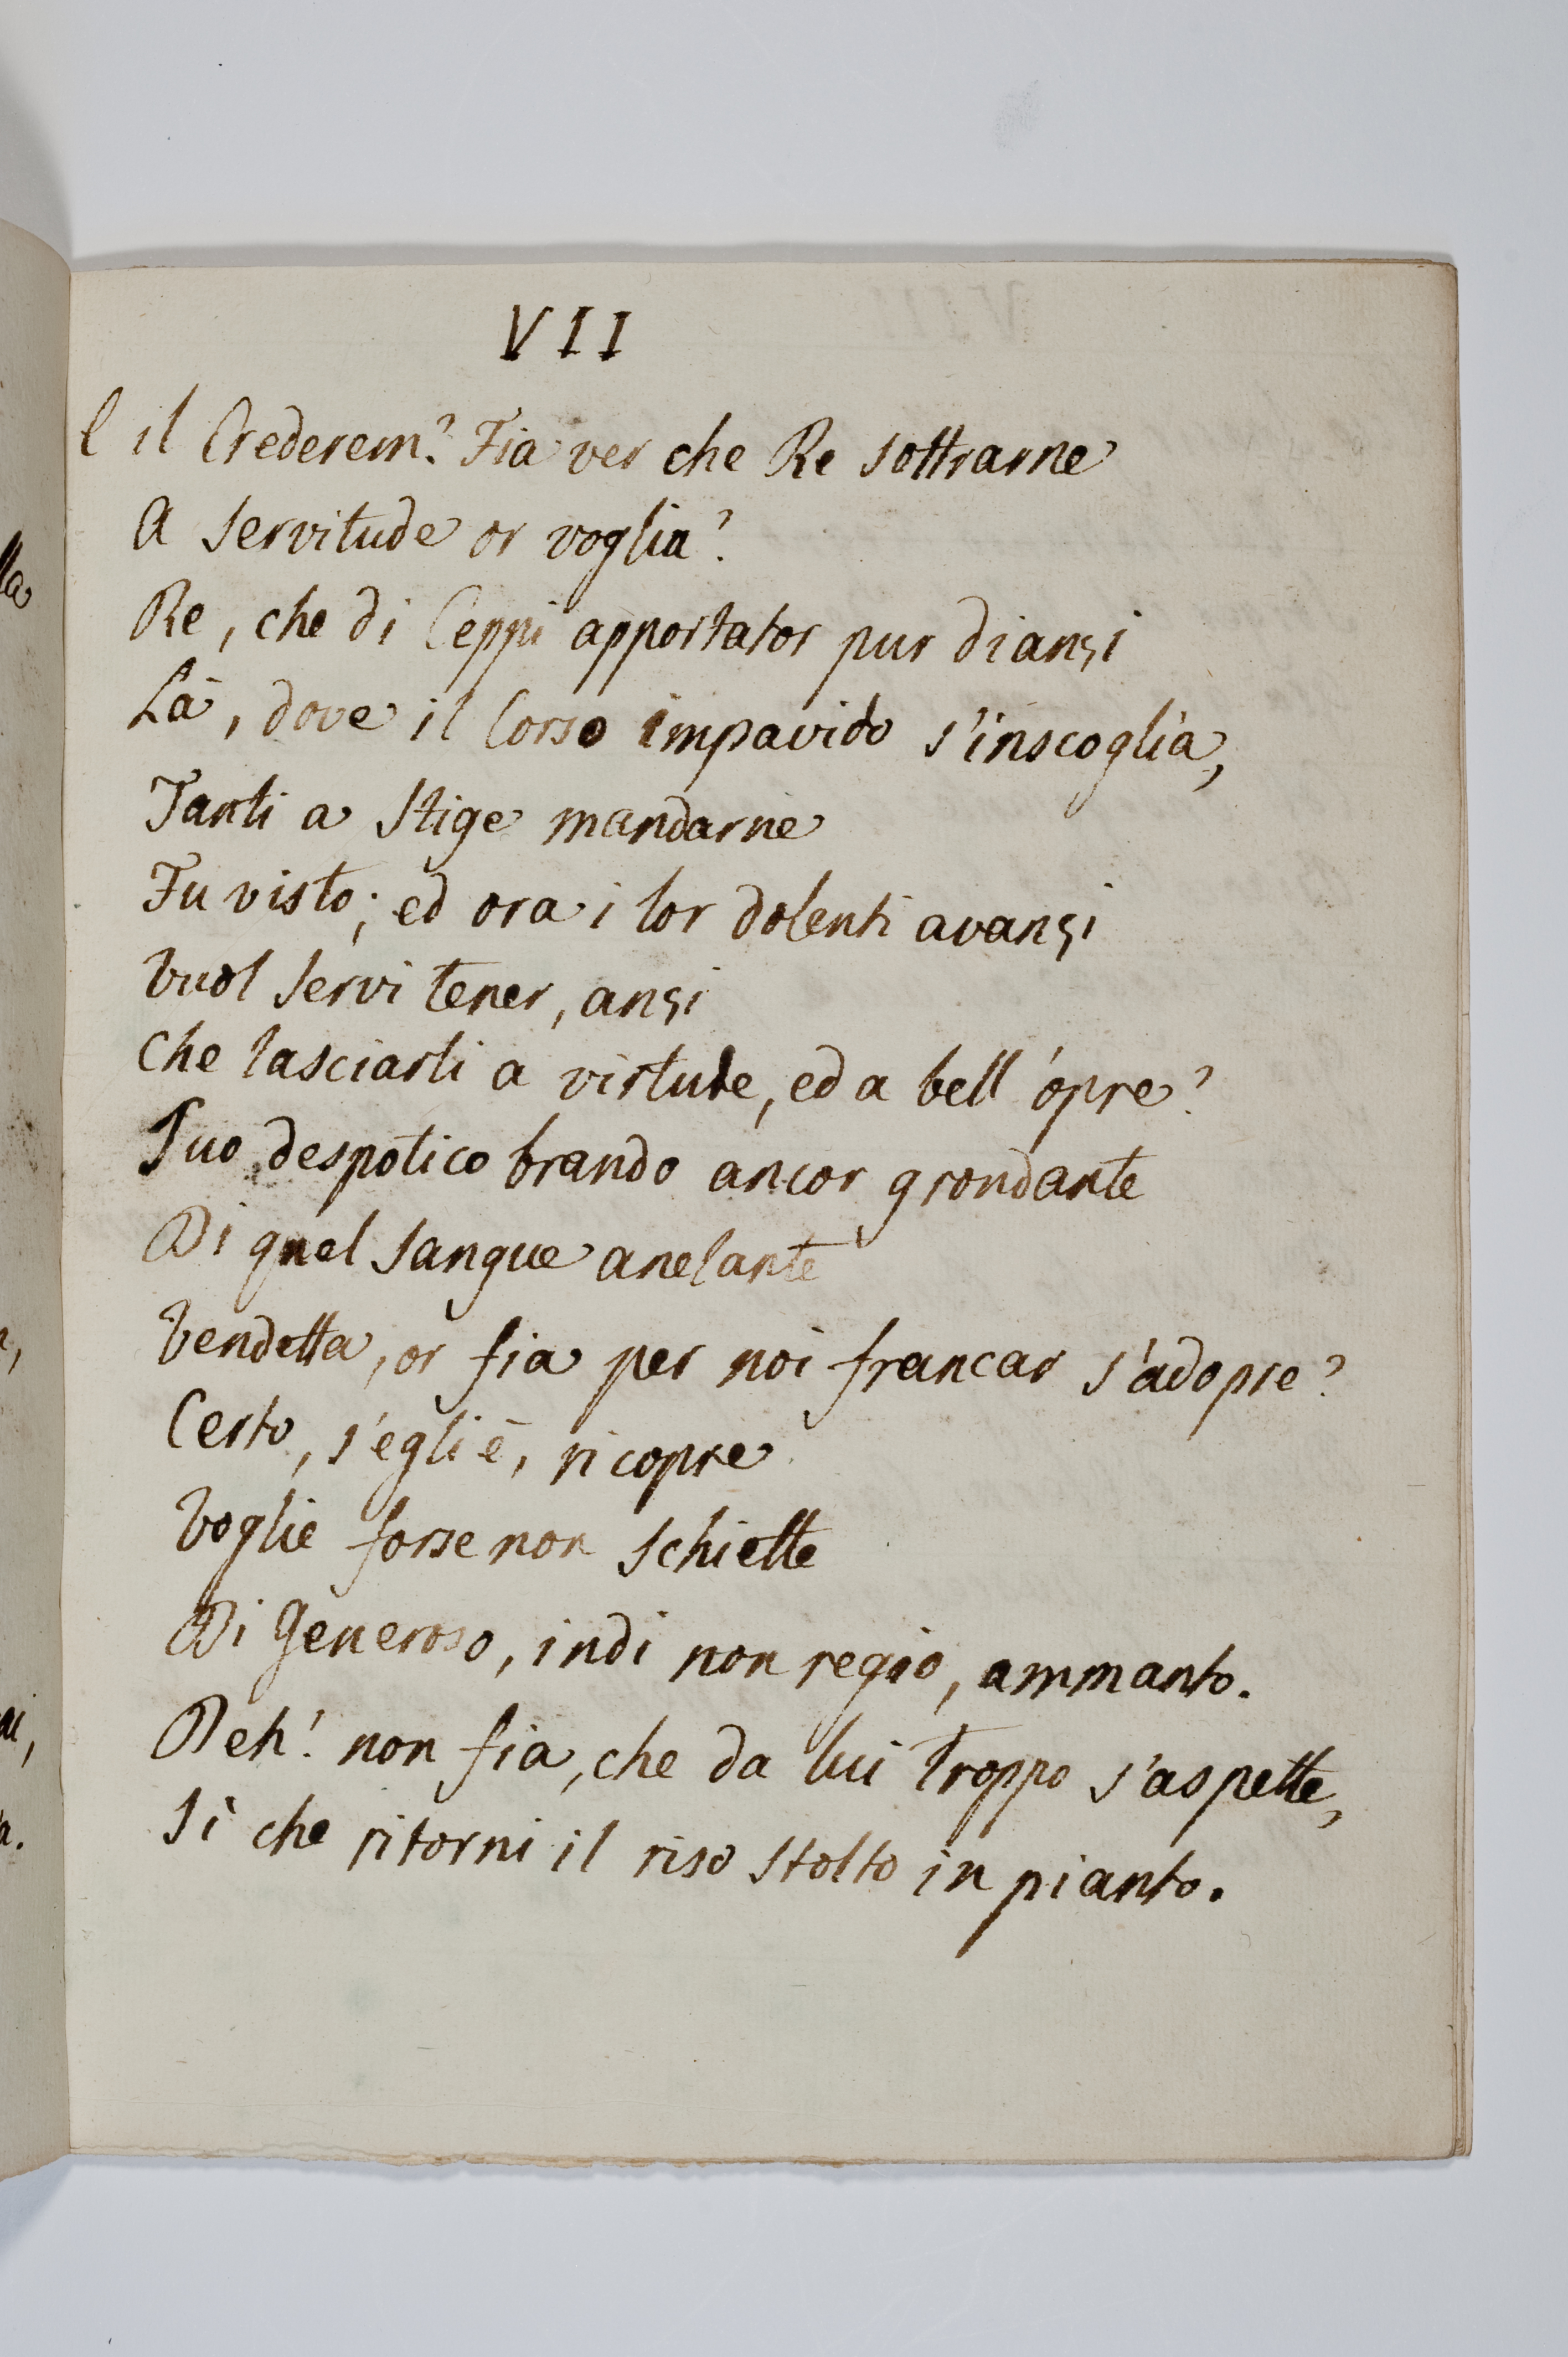 VII
E il Crederem? Fia ver che Re sottrarne
A servitude or voglia?
Re, che di Ceppi apportator pur dianzi
Là, dove il Corso impavido s'inscoglia,
Tanti a Stige mandarne
Fu visto; ed ora i lor dolenti avanzi
Vuol servi tener, anzi
Che lasciarli a virtude, ed a bell'opre?
Suo despotico brando ancor grondante
Di quel sangue anelante
Vendetta, or fia per noi francar s'adopre?
Certo, s'egli è, ricopre
Voglie forse non schiette
Di Generoso, indi non regio, ammanto.
Deh! non fia, che da lui troppo s'aspette,
Sì che ritorni il riso stolto in pianto.